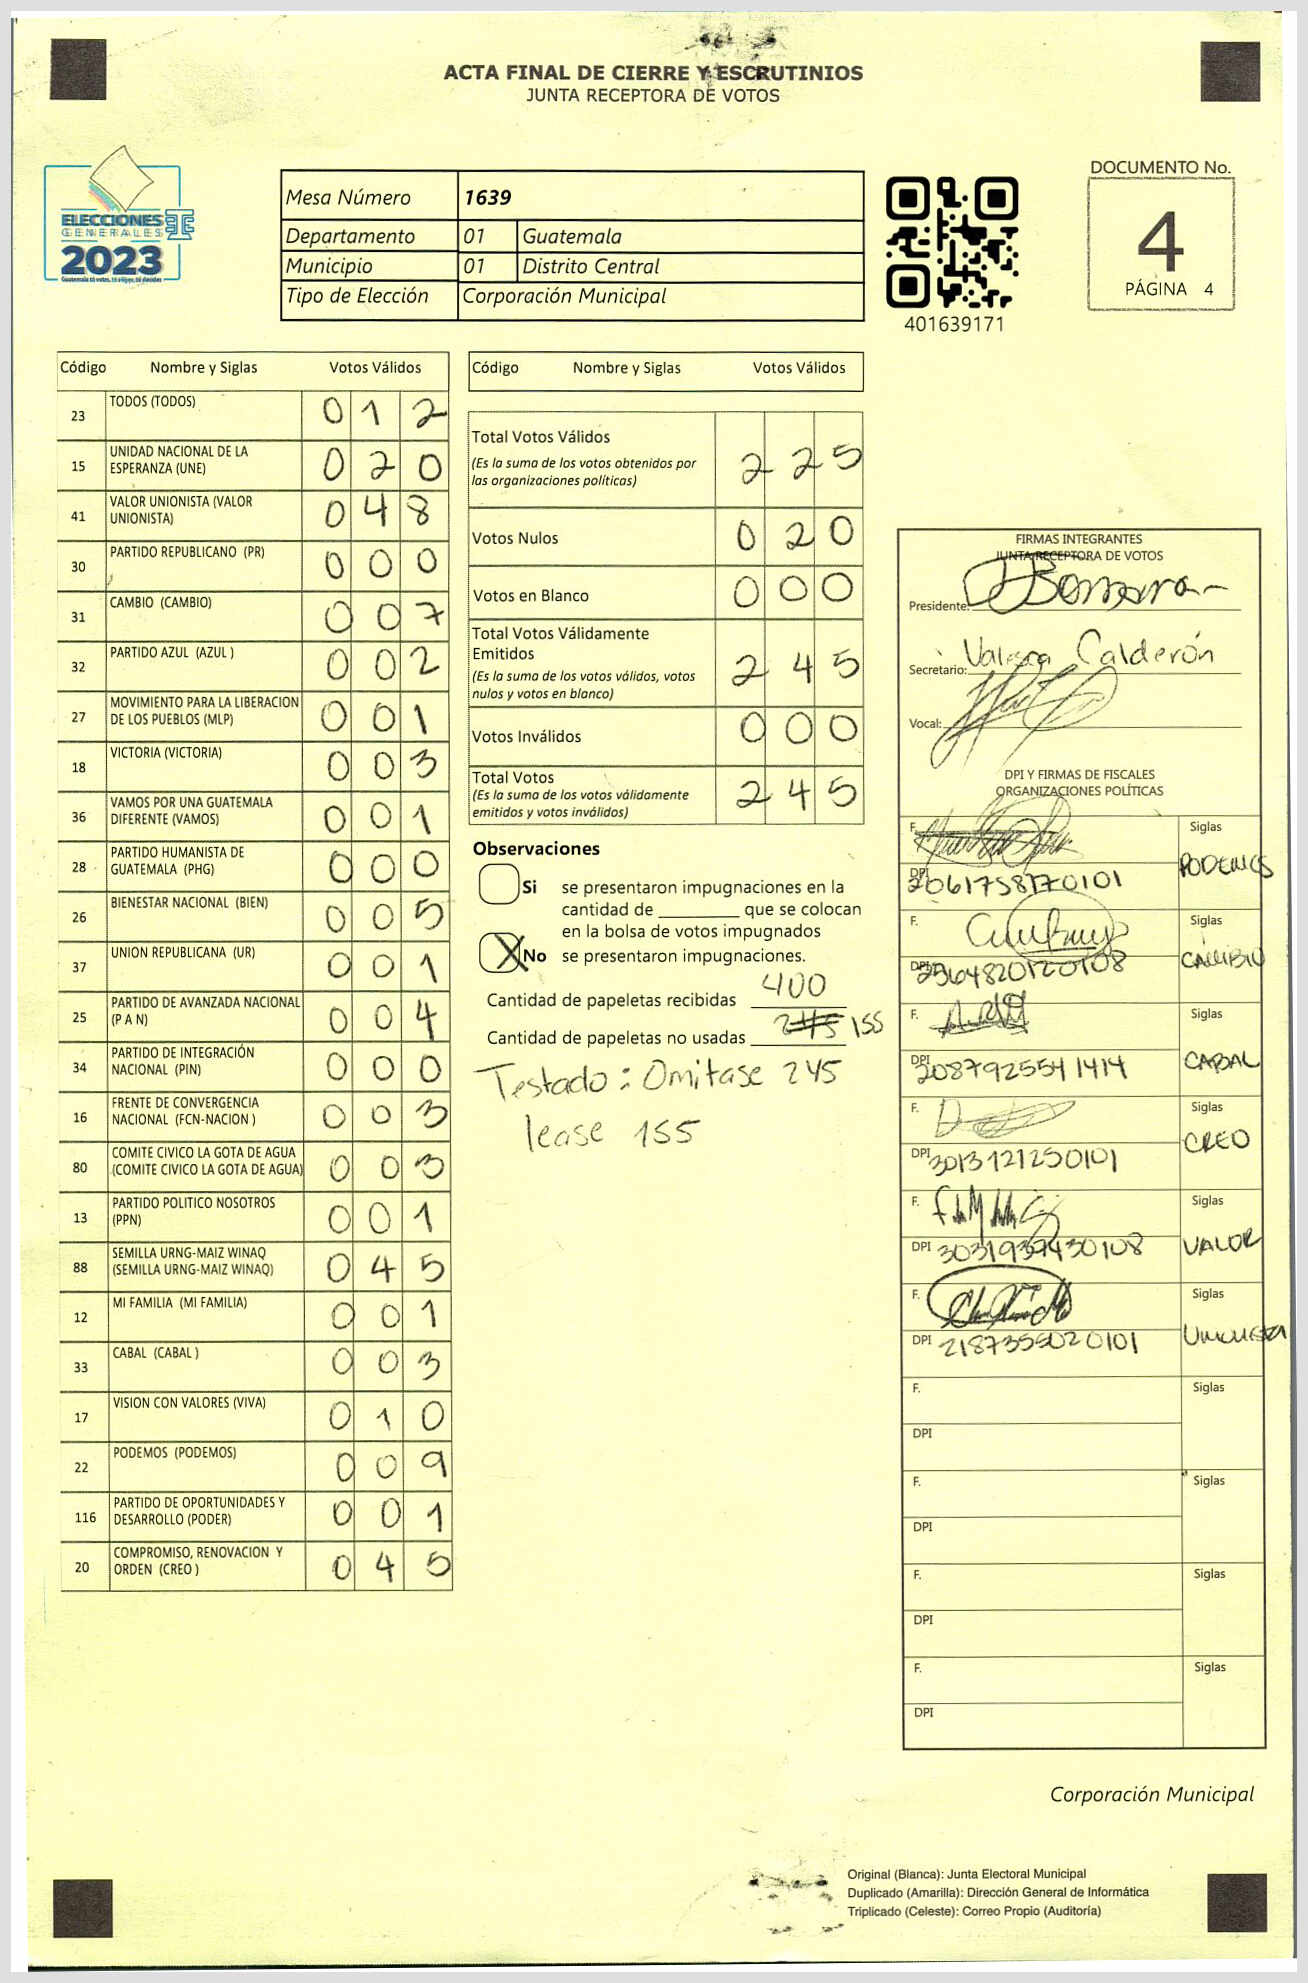 ACTA FINAL DE CIERRE Y ESCRUTINIOS
JUNTA RECEPTORA DE VOTOS
ELECCIONES
GENERALES
2023
Mesa Número 1639
Departamento 01 Guatemala
Municipio 01 Distrito Central
Tipo de Elección Corporación Municipal
401639171
DOCUMENTO No.
4
PÁGINA 4
Código Nombre y Siglas Votos Válidos
23 TODOS (TODOS) 0 1 2
15 UNIDAD NACIONAL DE LA
ESPERANZA (UNE) 0 2 0
41 VALOR UNIONISTA (VALOR
UNIONISTA) 0 4 8
30 PARTIDO REPUBLICANO (PR) 0 0 0
31 CAMBIO (CAMBIO) 0 0 7
32 PARTIDO AZUL (AZUL ) 0 0 2
27 MOVIMIENTO PARA LA LIBERACION
DE LOS PUEBLOS (MLP) 0 0 1
18 VICTORIA (VICTORIA) 0 0 3
36 VAMOS POR UNA GUATEMALA
DIFERENTE (VAMOS) 0 0 1
28 PARTIDO HUMANISTA DE
GUATEMALA (PHG) 0 0 0
26 BIENESTAR NACIONAL (BIEN) 0 0 5
37 UNION REPUBLICANA (UR) 0 0 1
25 PARTIDO DE AVANZADA NACIONAL
(P A N) 0 0 4
34 PARTIDO DE INTEGRACIÓN
NACIONAL (PIN) 0 0 0
16 FRENTE DE CONVERGENCIA
NACIONAL (FCN-NACION ) 0 0 3
80 COMITE CIVICO LA GOTA DE AGUA
(COMITE CIVICO LA GOTA DE AGUA) 0 0 3
13 PARTIDO POLITICO NOSOTROS
(PPN) 0 0 1
88 SEMILLA URNG-MAIZ WINAQ
(SEMILLA URNG-MAIZ WINAQ) 0 4 5
12 MI FAMILIA (MI FAMILIA) 0 0 1
33 CABAL (CABAL ) 0 0 3
17 VISION CON VALORES (VIVA) 0 1 0
22 PODEMOS (PODEMOS) 0 0 9
116 PARTIDO DE OPORTUNIDADES Y
DESARROLLO (PODER) 0 0 1
20 COMPROMISO, RENOVACION Y
ORDEN (CREO ) 0 4 5
Código Nombre y Siglas Votos Válidos
Total Votos Válidos
(Es la suma de los votos obtenidos por
las organizaciones políticas) 2 2 5
Votos Nulos 0 2 0
Votos en Blanco 0 0 0
Total Votos Válidamente
Emitidos
(Es la suma de los votos válidos, votos
nulos y votos en blanco) 2 4 5
Votos Inválidos 0 0 0
Total Votos
(Es la suma de los votos válidamente
emitidos y votos inválidos) 2 4 5
Observaciones
Si se presentaron impugnaciones en la
cantidad de ________ que se colocan
en la bolsa de votos impugnados
X No se presentaron impugnaciones.
Cantidad de papeletas recibidas 400
Cantidad de papeletas no usadas 245 155
Testado: Omitase 245
lease 155
FIRMAS INTEGRANTES
JUNTA RECEPTORA DE VOTOS
Presidente:
Secretario: Calderón
Vocal:
DPI Y FIRMAS DE FISCALES
ORGANIZACIONES POLÍTICAS
F. Siglas
DPI 2061758170101 PODEMOS
F. Siglas
DPI 2564820120108 CAMBIO
F. Siglas
DPI 2087925541414 CABAL
F. Siglas
DPI 3013121250101 CREO
F. Siglas
DPI 3031939430108 VALOR
F. Siglas
DPI 2187355020101 UNIONISTA
F. Siglas
DPI
F. Siglas
DPI
F. Siglas
DPI
F. Siglas
DPI
Corporación Municipal
Original (Blanca): Junta Electoral Municipal
Duplicado (Amarilla): Dirección General de Informática
Triplicado (Celeste): Correo Propio (Auditoría)